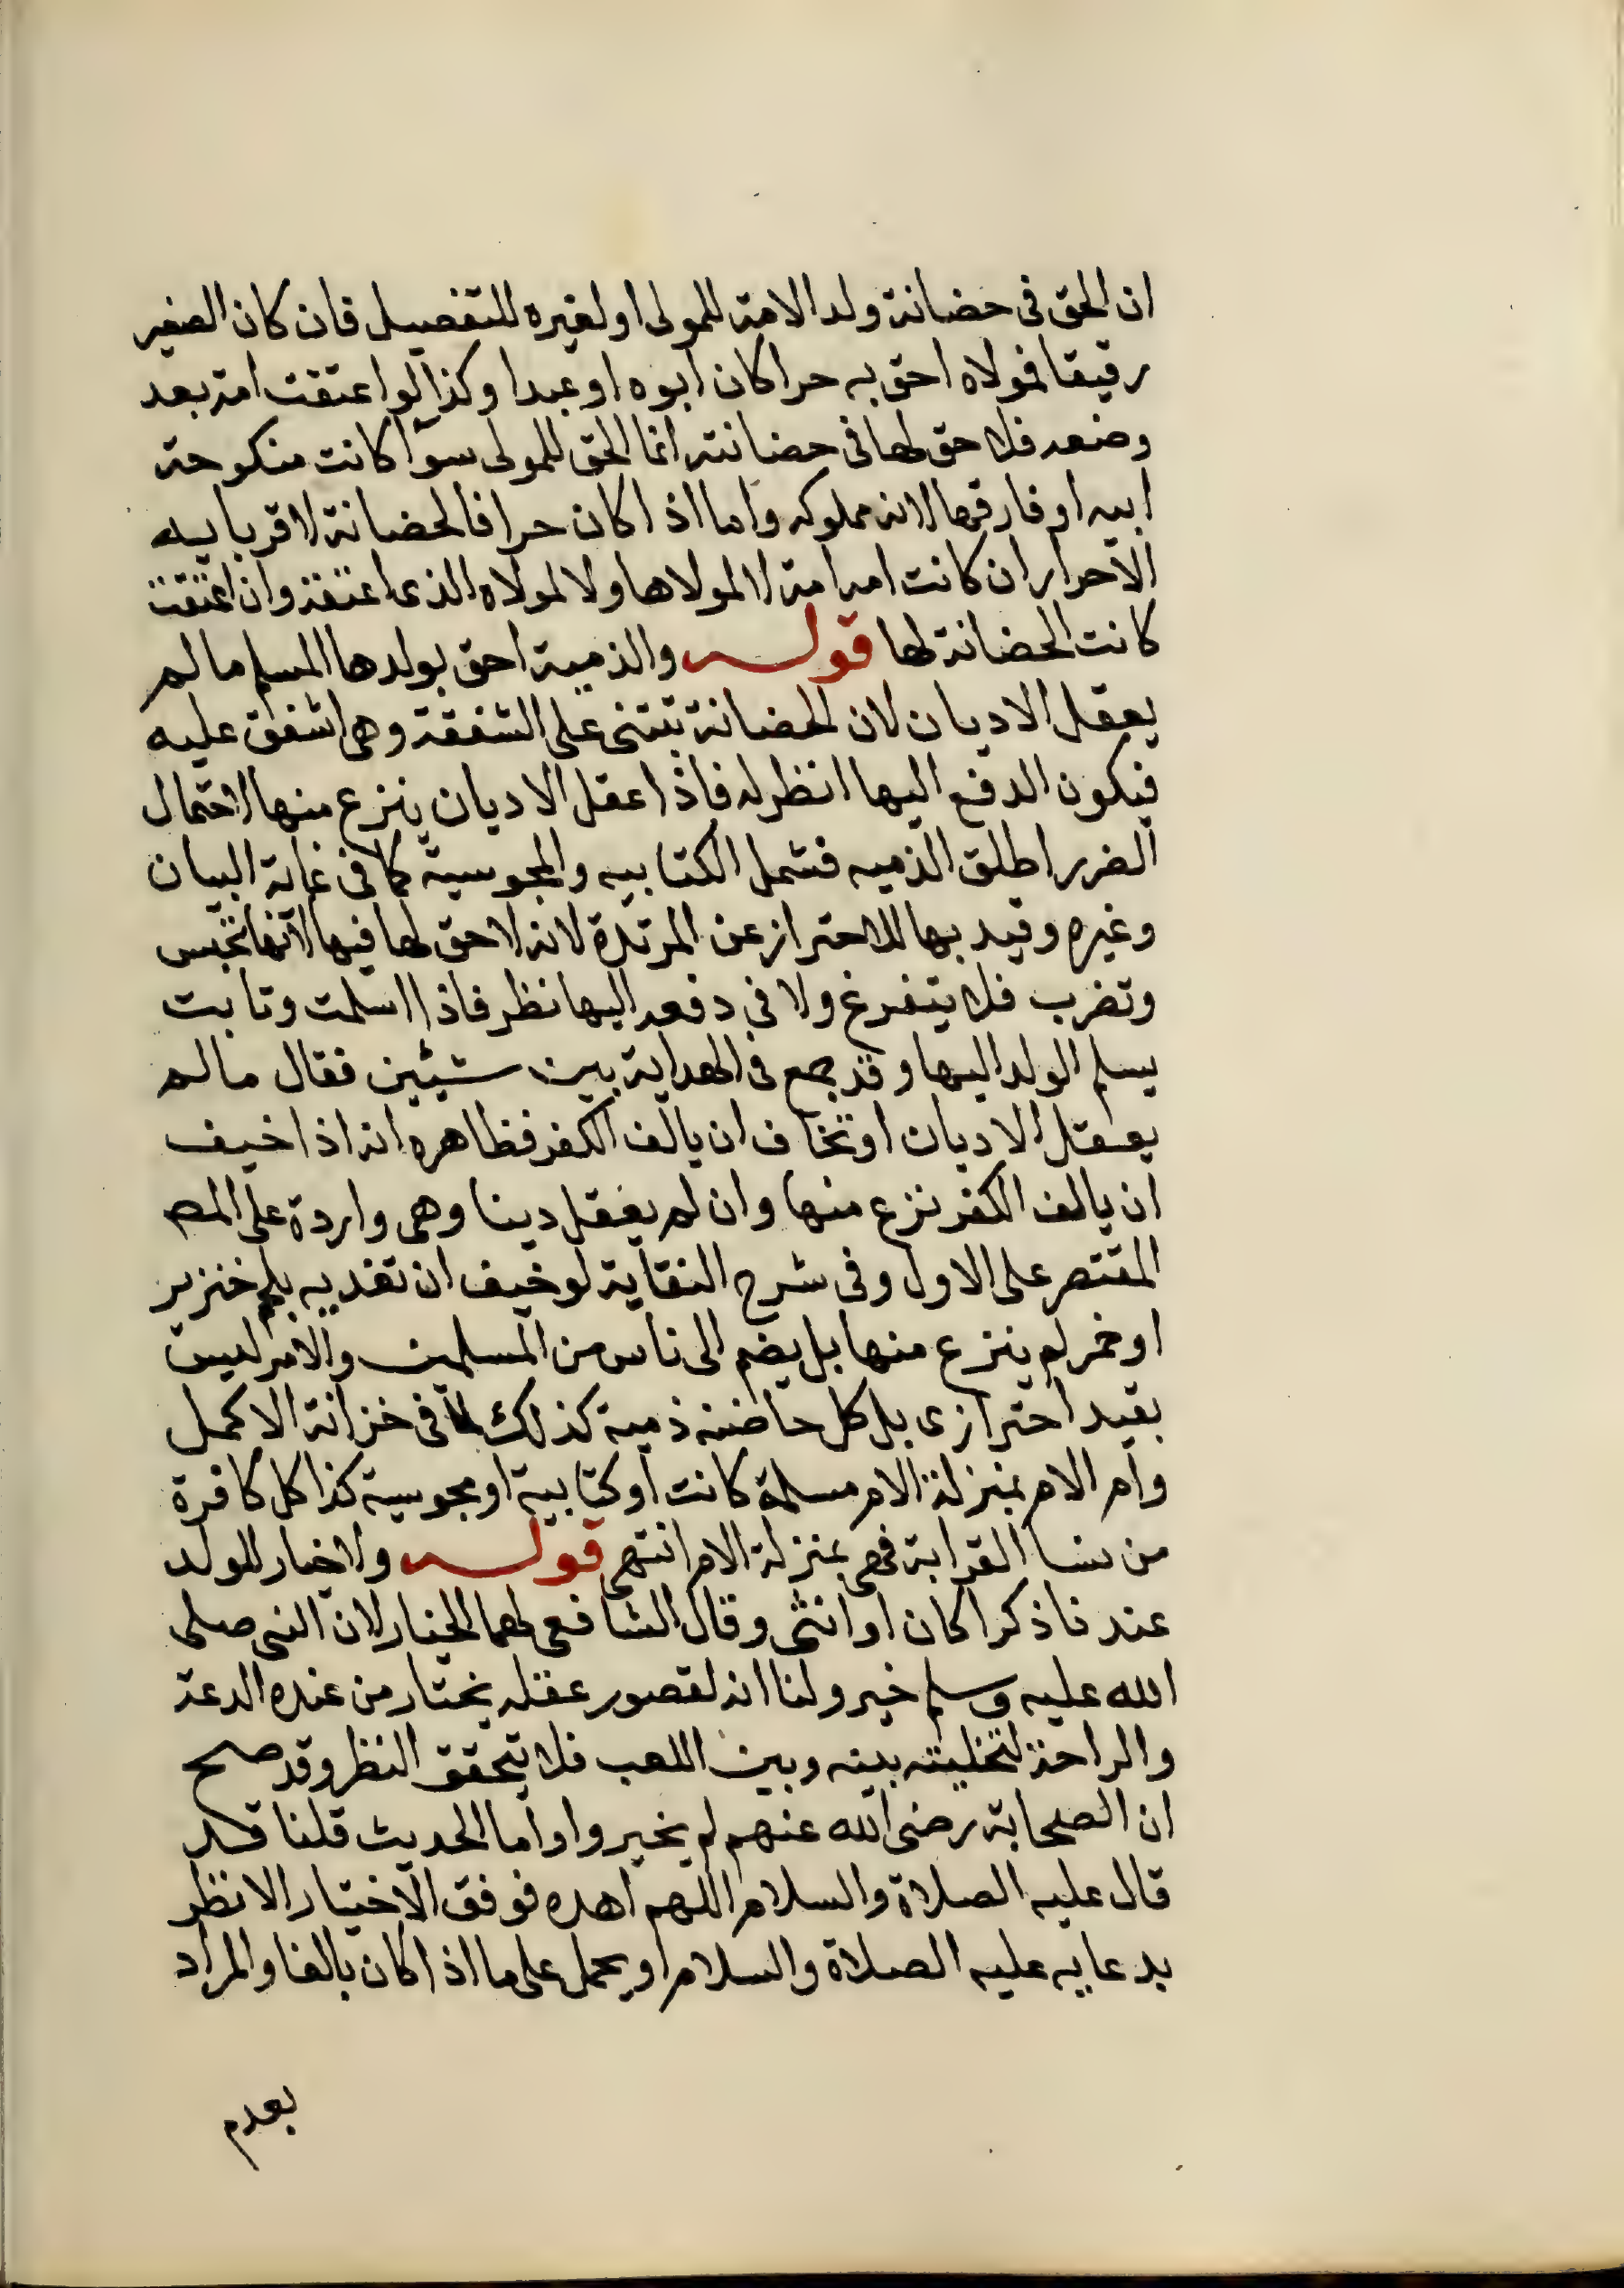 ان الحق فى حضانة ولد الامة للمولى او لغيره للتفصيل فان كان الصغير
رقيقا فمولاه احق به حرا كان ابوه او عبدا وكذا لو اعتقت امه بعد
وضعه فلا حق لها فى حضانته انما الحق للمولى سوآ كانت منكوحة
ابيه او فارقها لانه مملوكه واما اذا كان حرا فالحضانة لاقربايه
الاحرار ان كانت امه امة لا لمولاها ولا لمولاه الذى اعتقه وان اعتقت
كانت الحضانة لها قوله والذمية احق بولدها المسلم ما لم
يعقل الاديان لان الحضانة تبتنى على الشفقة وهى اشفق عليه
فيكون الدفع اليها انظر له فاذا عقل الاديان ينزع منها لاحتمال
الضرر اطلق الذميه فشمل الكتابيه والمجوسية كما فى غاية البيان
وغيره وقيد بها للاحتراز عن المرتدة لانه لا حق لها فيها لانها تحبس
وتضرب فلا يتفرغ ولا فى دفعه اليها نظر فاذا اسلمت وتابت
يسلم الولد اليها وقد جمع فى الهداية بين شيئين فقال ما لم
يعقل الاديان او تخاف ان يالف الكفر فظاهره انه اذا خيف
ان يالف الكفر نزع منها وان لم يعقل دينا وهى واردة على المص
المقتصر على الاول وفى شرح النقاية لو خيف ان تغديه بلحم خنزير
او خمر لم ينزع منها بل يضم الى ناس من المسلمين والام ليس
بقيد احترازى بل كل حاضنه ذمية كذلك لما فى خزانة الاكمل
وام الام بمنزلة الام مسلمة كانت او كتابية او مجوسية كذا كل كافرة
من نسا القرابة فهى بمنزلة الام انتهى قوله ولا خيار للولد
عندنا ذكرا كان او انثى وقال الشافعى لهما الخيار لان النبى صلى
الله عليه وسلم خير ولنا انه لقصور عقله يختار من عنده الدعة
والراحة لتخليته بينه وبين اللعب فلا يتحقق النظر وقد صح
ان الصحابة رضى الله عنهم لم يخيروا واما الحديث قلنا قد
قال عليه الصلاة والسلام اللهم اهده فوفق لاختيار الانظر
بدعايه عليه الصلاة والسلام او يحمل على ما اذا كان بالغا والمراد
بعدم